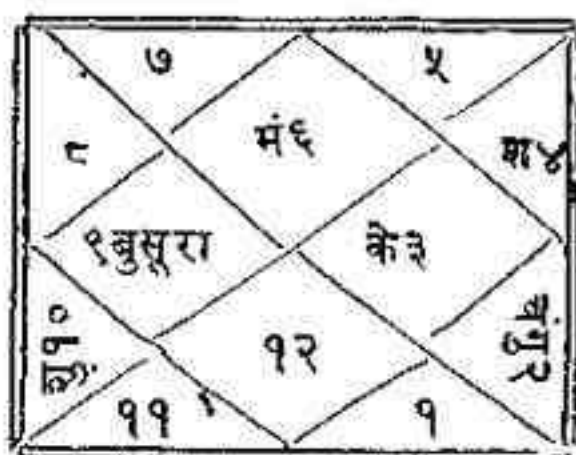 ७ ५
८ मं६ श४
९बुसूरा के३
शु१० १२ चंगु२
११ १